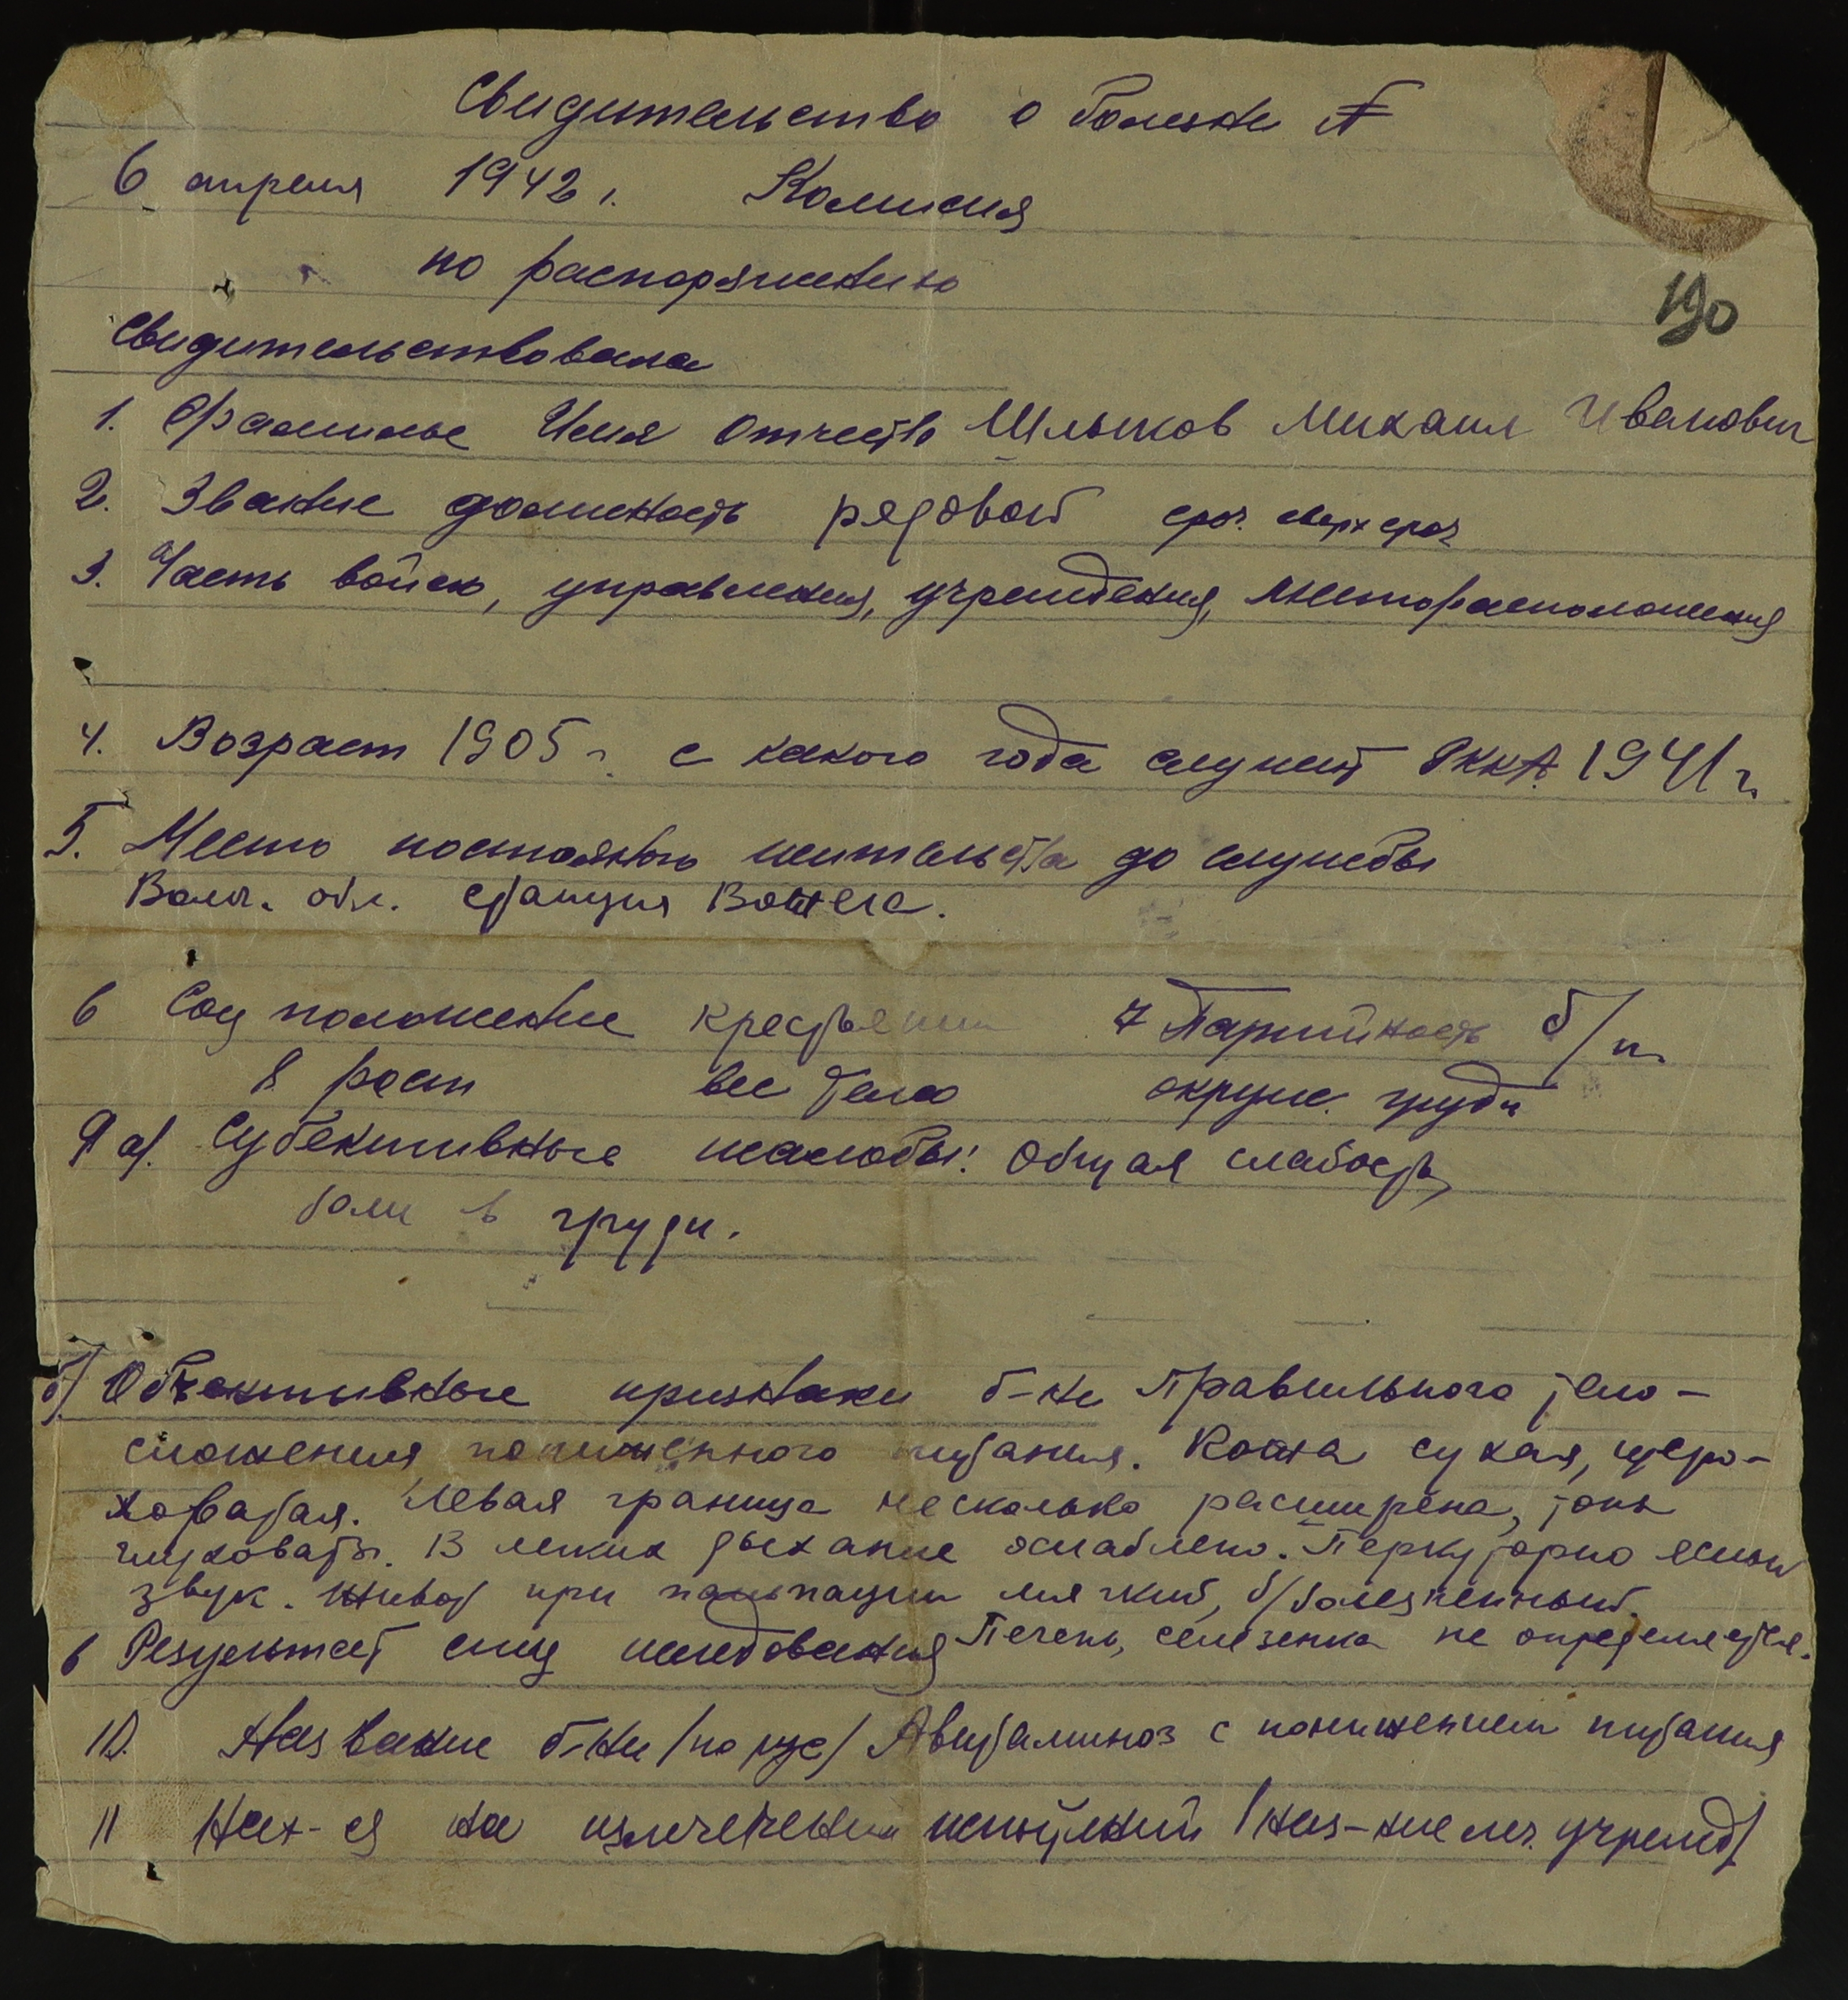 Свидительство о болезни №
6 апреля 1942 г. Комисия
по распоряжению
190
Свидительствовала
1. Фамилье Имя Отчество Шлыков Михаил Иванович
2. Звание должность рядовой сроч. сверхсроч
3. Часть войск, управления, учреждения, месторасположения
4. Возраст 1905 г. с какого года служит РККА 1941 г.
5. Место постояного жительства до службы
Волог. обл. станция Вожега.
6 Соц положение крестьянин 7 Партийность б/п.
8. рост вес тела окруж. груди
9 а/. Субективные жалобы: Общая слабость,
боли в груди.
б/ Обективные признаки б-ни Правильного тело-
сложения, пониженного питания. Кожа сухая, шеро-
ховатая. Левая граница несколько расширена, тоны
глуховаты. В легких дыхание ослаблено. Перкуторно ясный
звук. Живот при пальпации мягкий, б/болезненный.
в Результат спец иследования Печень, селезенка не определяется.
10. Название б-ни /по рус/ Авитаминоз с понижением питания
11 Нах-ся на излечении /наз-ние леч. учрежд/